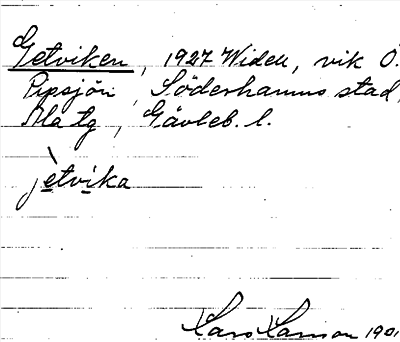 Getviken, 1927 Widell, vik Ö.
Pipsjön, Söderhamns stad,
Ala tg, Gävleb. l.
jètvika
Lars Larsson 190